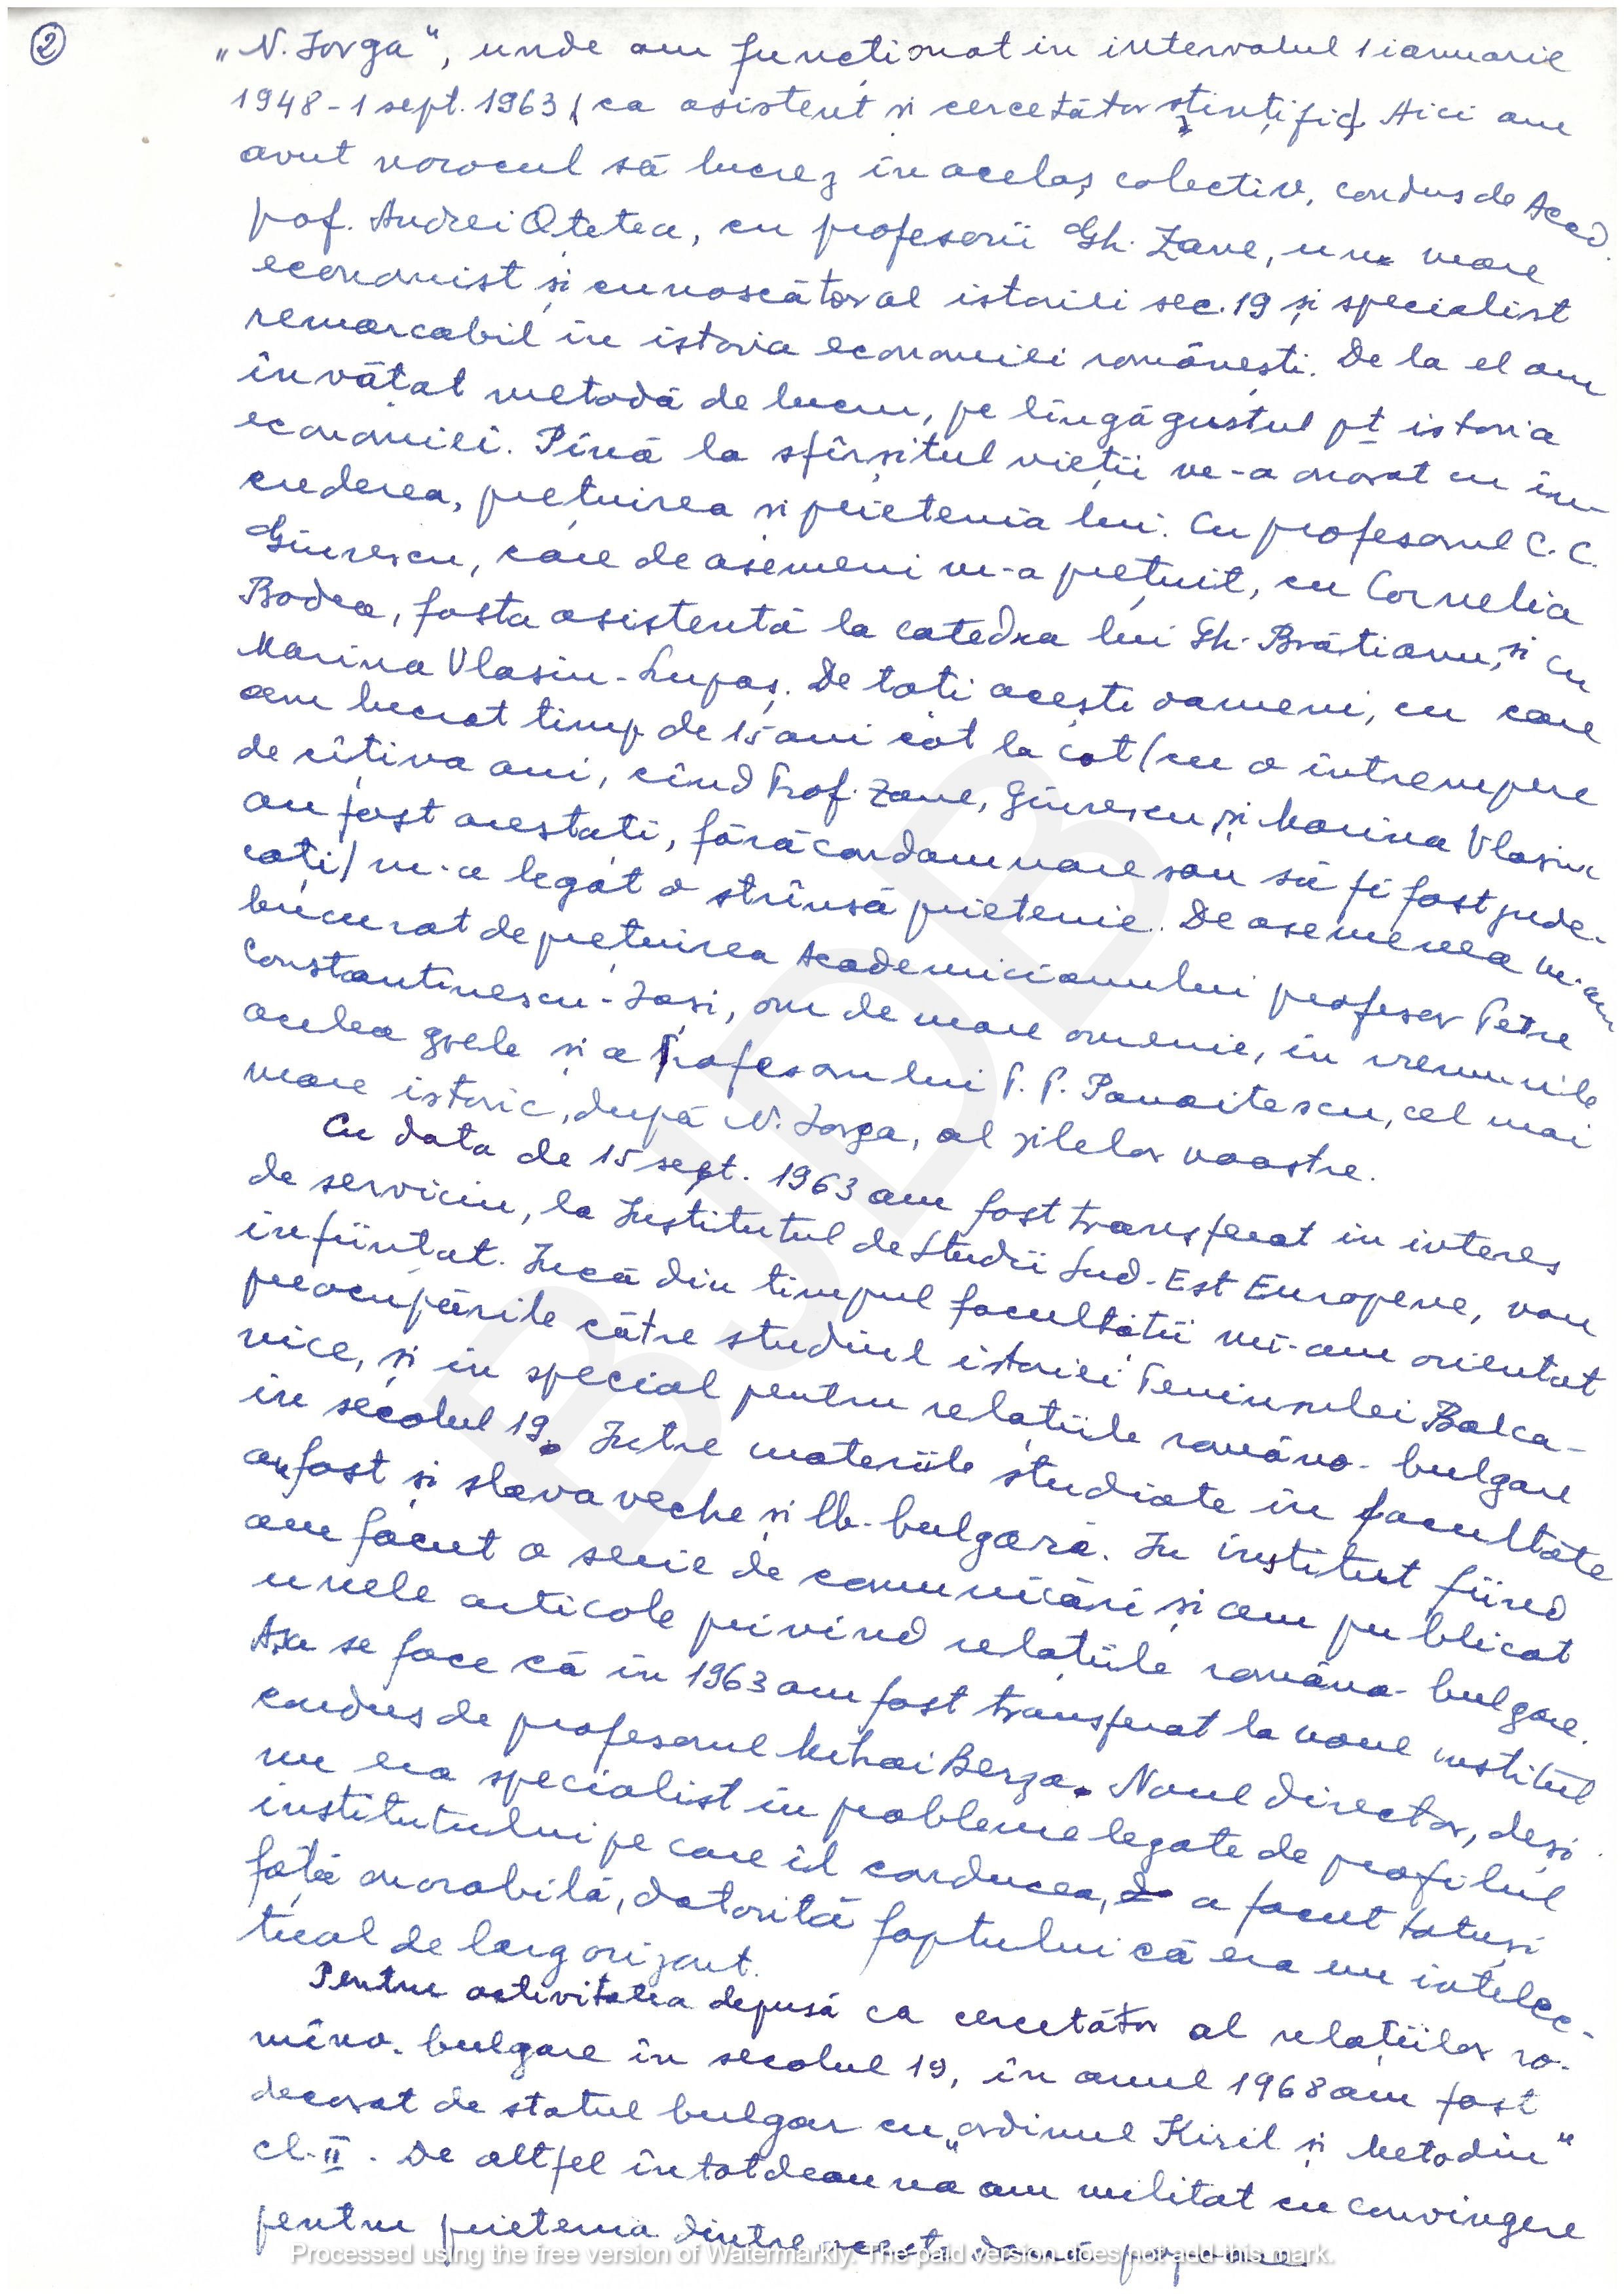 ②
„N. Iorga", unde am funcționat in intervalul 1 ianuarie
1948 - 1 sept. 1963 (ca asistent si cercetător științific). Aici am
avut norocul să lucrez în acelaș colectiv, condus de Acad.
prof. Andrei Oțetea, cu profesorii Gh. Zane, un mare
economist și cunoscător al istoriei sec. 19 și specialist
remarcabil în istoria economiei românești. De la el am
învățat metodă de lucru, pe lîngă gustul pt istoria
economiei. Pînă la sfîrșitul vieții m-a onorat cu în-
crederea, prețuirea si prietenia lui. Cu profesorul C. C.
Giurescu, care de asemeni m-a prețuit, cu Cornelia
Bodea, fosta asistentă la catedra lui Gh. Brătianu, si cu
Marina Vlasiu-Lupaș. De toti acești oameni, cu care
am lucrat timp de 15 ani cot la cot (cu o întrerupere
de cîțiva ani, cînd Prof. Zane, Giurescu și Marina Vlasiu
au fost arestați, fără condamnare sau să fi fost jude-
cați) m-a legat o strînsă prietenie. De asemenea m-am
bucurat de prețuirea Academicianului profesor Petre
Constantinescu-Iași, om de mare omenie, în vremurile
acelea grele și a Profesorului P. P. Panaitescu, cel mai
mare istoric, după N. Iorga, al zilelor noastre.
Cu data de 15 sept. 1963 am fost transferat in interes
de serviciu, la Institutul de Studii Sud-Est Europene, nou
înființat. Încă din timpul facultății mi-am orientat
preocupările către studiul istoriei Peninsulei Balca-
nice, și in special pentru relațiile româno-bulgare
in secolul 19. Intre materiile studiate în facultate
au fost și slava veche și lb. bulgară. In institut fiind
am facut o serie de comunicări și am publicat
unele articole privind relațiile româno-bulgare.
Așa se face că în 1963 am fost transferat la noul institut
condus de profesorul Mihai Berza. Noul director, deși
nu era specialist în probleme legate de profilul
institutului pe care il conducea, a facut totuși
față onorabilă, datorită faptului că era un intelec-
tual de larg orizont.
Pentru activitatea depusă ca cercetător al relațiilor ro-
mîno-bulgare în secolul 19, în anul 1968 am fost
decorat de statul bulgar cu „ordinul Kiril și Metodiu"
cl. II. De altfel întotdeauna am militat cu convingere
pentru prietenia dintre aceste două popoare.
BJDB
Processed using the free version of Watermarkly. The paid version does not add this mark.